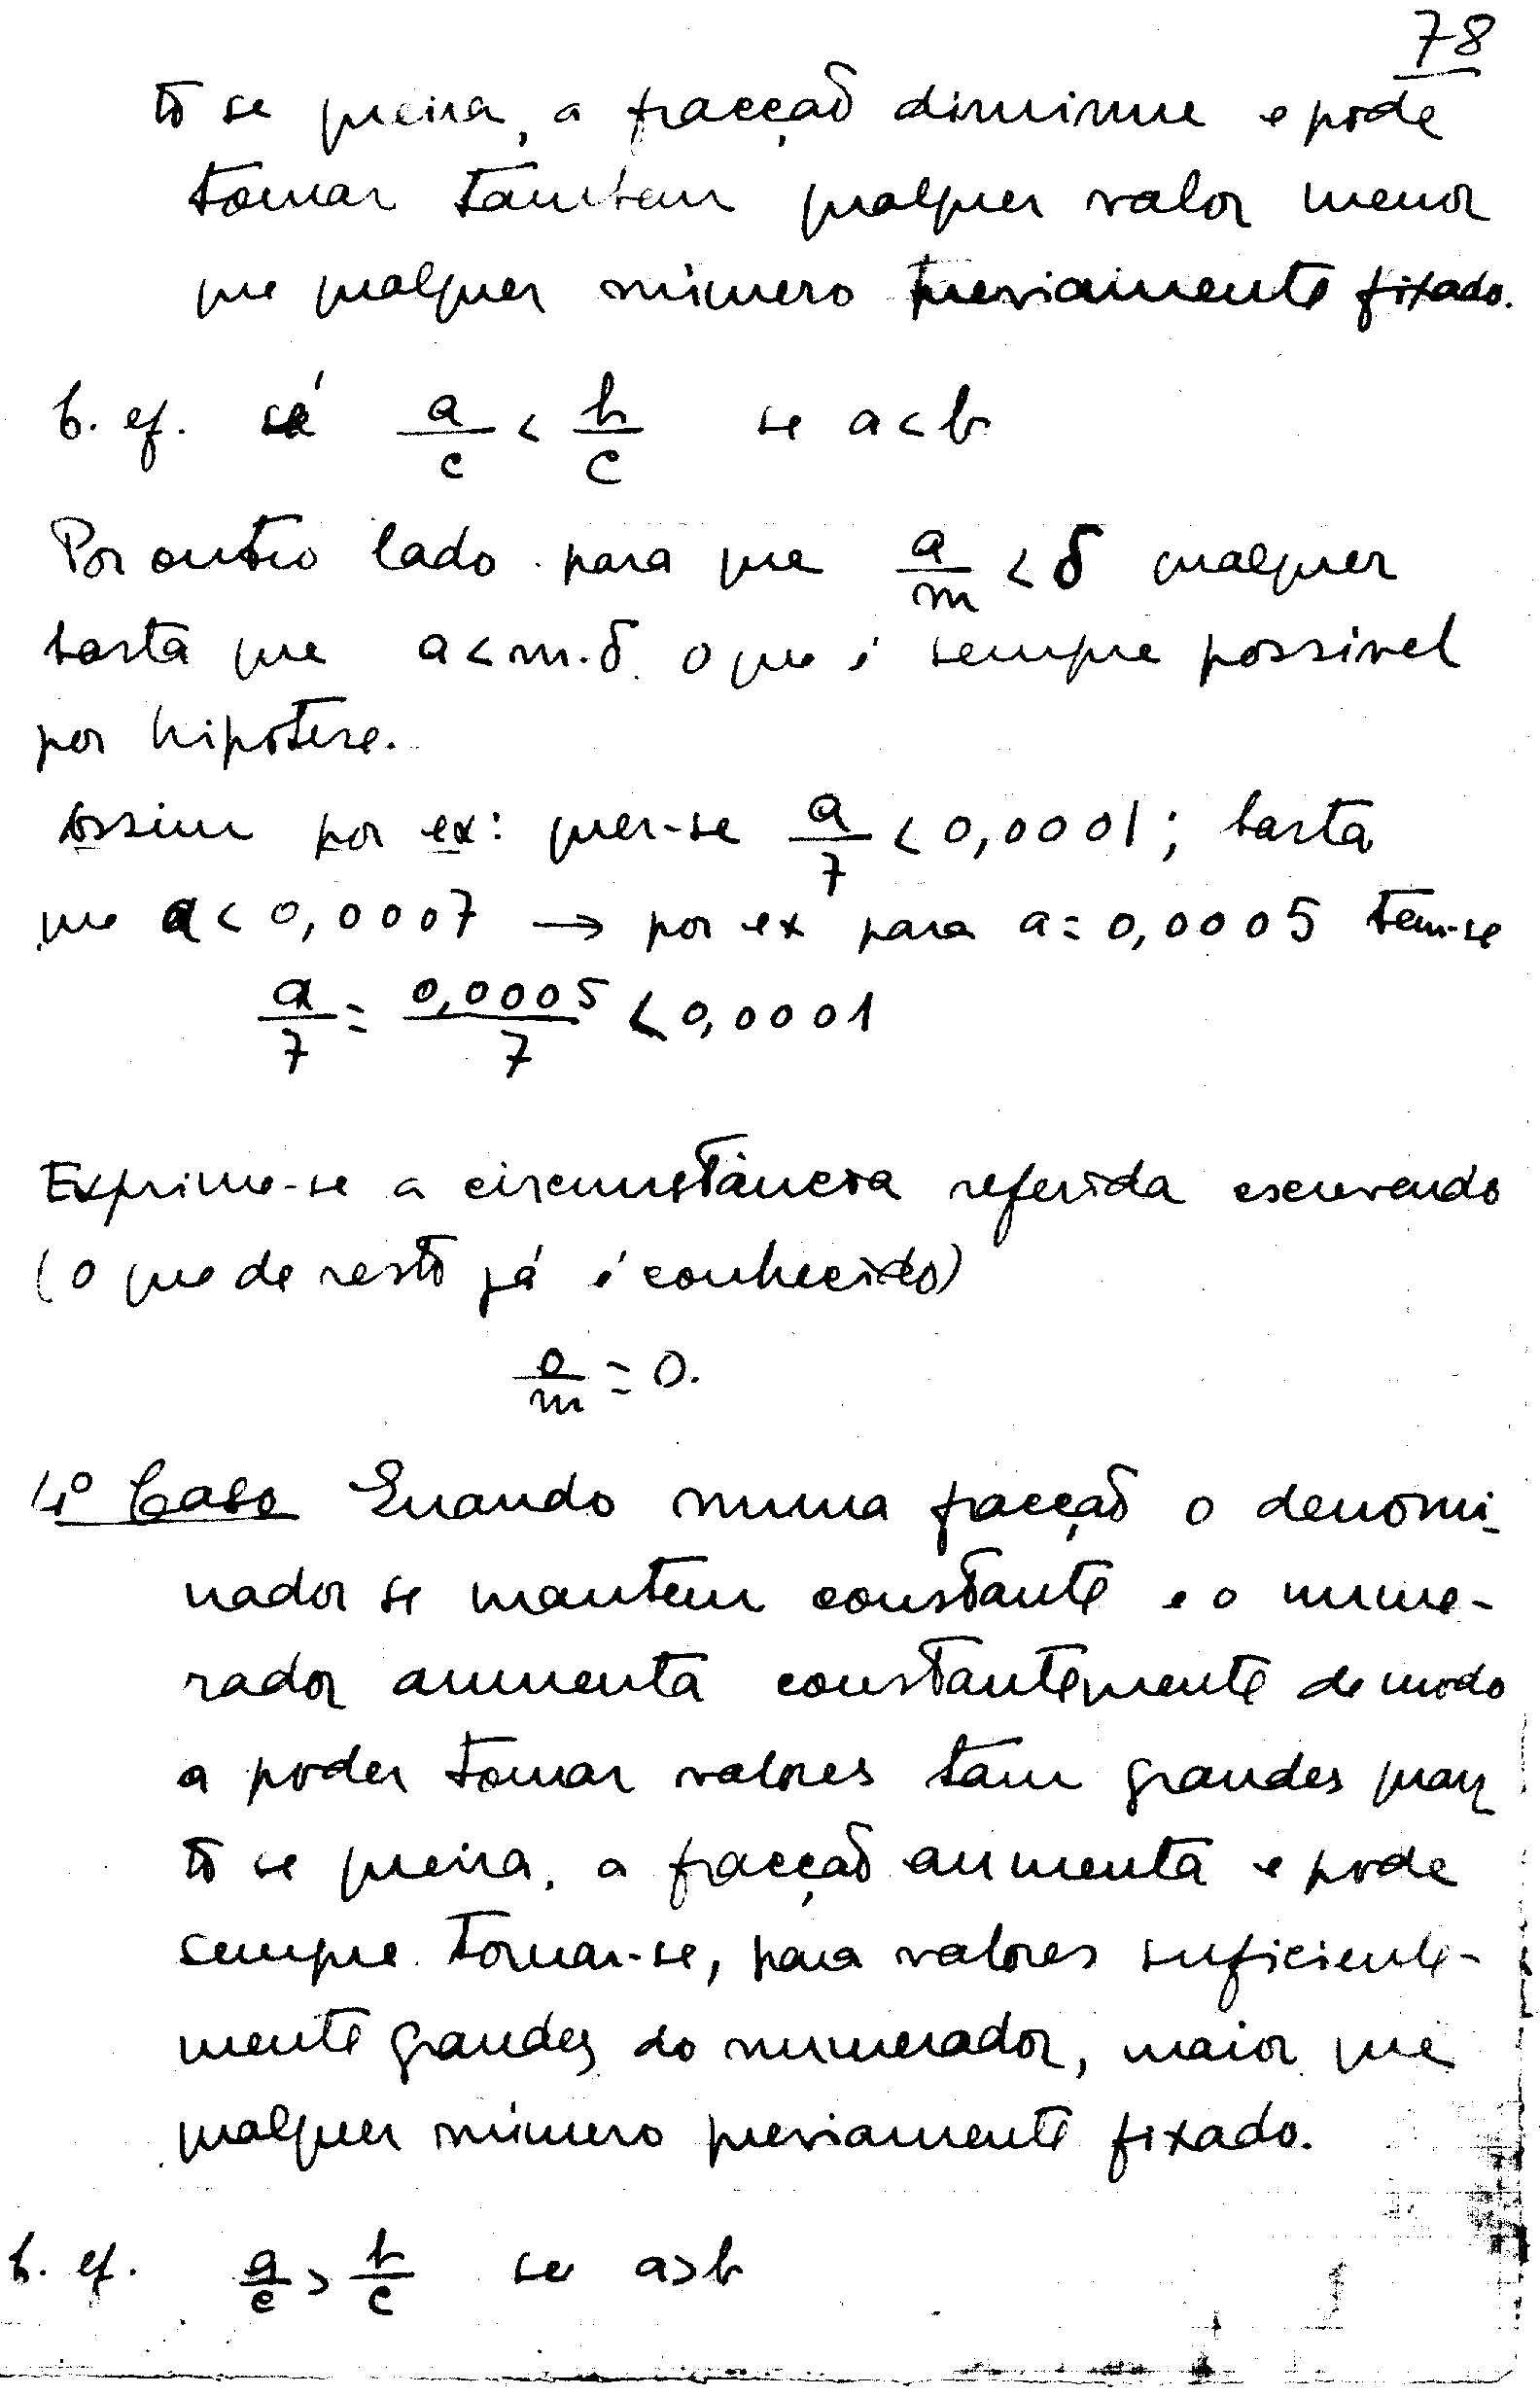 78
to se queira, a fracção diminue e pode
tomar tambem qualquer valor menor
que qualquer número previamente fixado.
C. ef. sé a/c < b/c se a < b
Por outro lado para que a/m < δ qualquer
basta que a < m.δ o que é sempre possivel
por hipótese.
Assim por ex: quer-se a/7 < 0,0001; basta
que a < 0,0007 → por ex para a = 0,0005 tem-se
a/7 = 0,0005/7 < 0,0001
Exprime-se a circunstância referida escrevendo
(o que de resto já é conhecido)
0/m = 0.
4º Caso Quando numa fracção o denomi-
nador se mantem constante e o nume-
rador aumenta constantemente de modo
a poder tomar valores tam grandes quan
to se queira, a fracção aumenta e pode
sempre tornar-se, para valores suficiente-
mente grandes do numerador, maior que
qualquer número previamente fixado.
C. ef. a/c > b/c se a > b